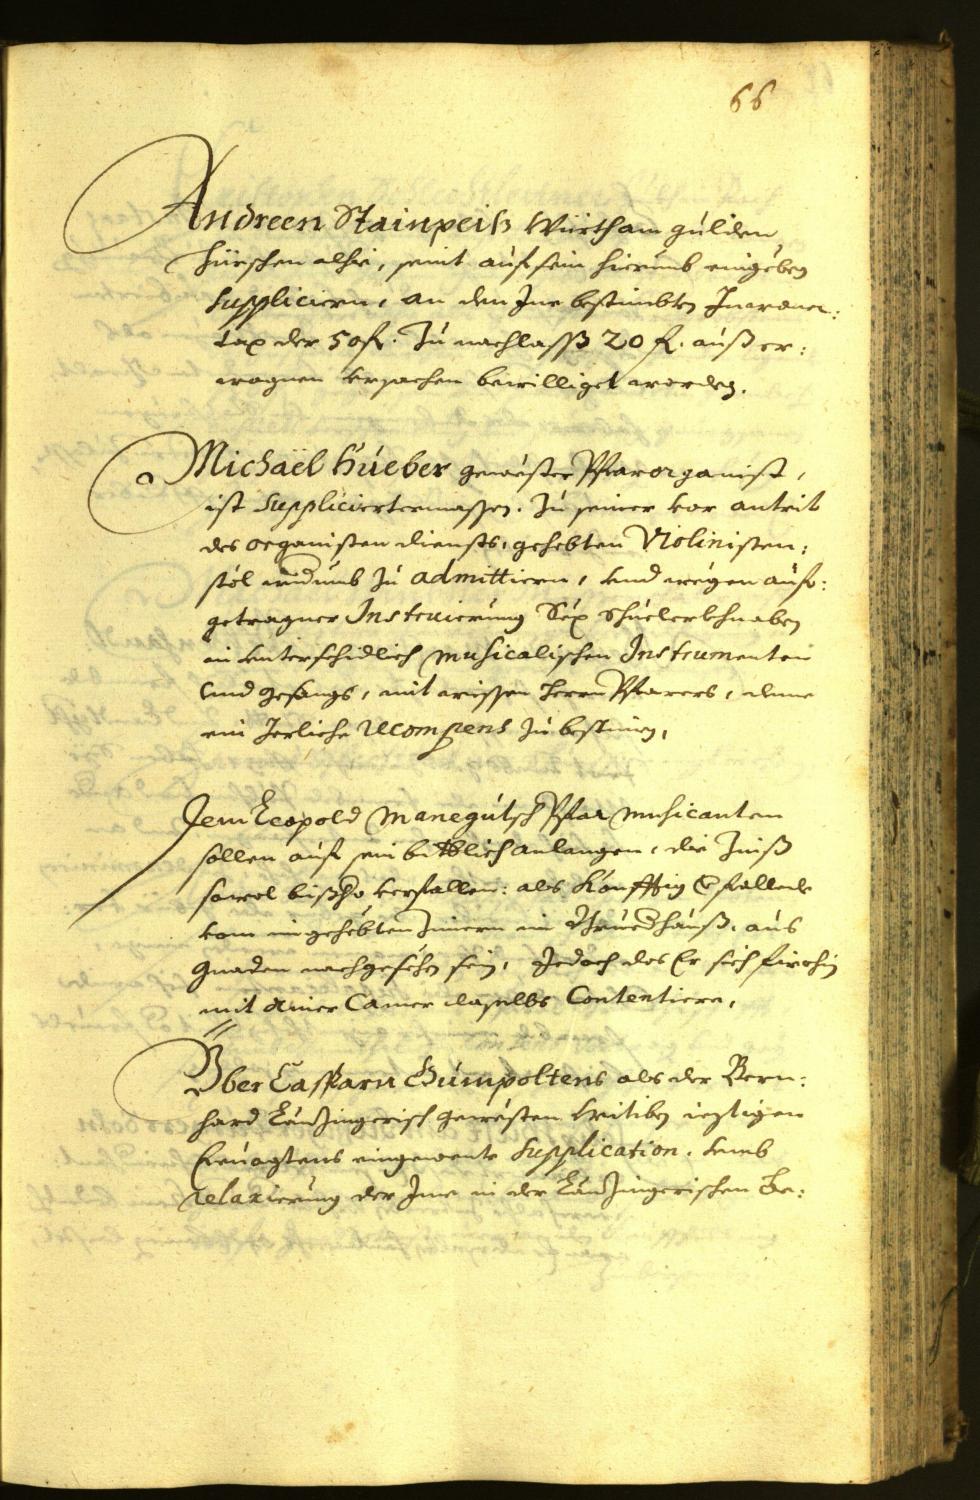 66
Andreen Stainpeiß Würth am gúlden
Hürschen alhie, seint auf sein hierumb eingeben
Suppliciern, an den Ime bestimbten Inwoner:
tax der 50 fl. Zú nachlaß 20 fl. auß er:
wognen Ursachen bewilliget worden.
Michaël Húeber gewester Pfarorganist,
ist Suppliciertermassen. Zú seiner vor antrit
des organisten diensts, gehebten Violinisten:
stöl widumb zú admittiern, und wegen auf:
getragner Instruierúng Sex Schúelerkhnaben
in unterschidlich Musicalischen Instrumenten
und gesangs, mit wissen Herrn Pfarers, deme
ein Jerliche Recompens zú bestimen,
Dem Leopold Manegútsch Pfar Musicanten
sollen auf sein bitlich anlangen, die Zinß
sowol bißhero verfallen: als Kónfftig verfallende
vom ingehebten Zimern im Púndhauß, aus
Gnaden nachgesehen sein, Jedoch das Er sich firohin
mit einer Camer daselbs Contentiere,
Über Casparn Gúmpoltens als der Bern:
hard gewesten Wittiben ieztigen
eingewente Supplication, umb
relaxierúng der Ime in der Be: